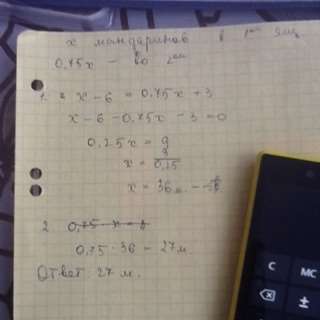 x мандаринов в 1ом ящ
0,75x – во 2ом
1. x – 6 = 0,75x + 3
x – 6 – 0,75x – 3 = 0
0,25x = 9
x = 9/0,25
x = 36
2. 0,75 x =
0,75 · 36 = 27 м.
Ответ 27 м.
C MC
±